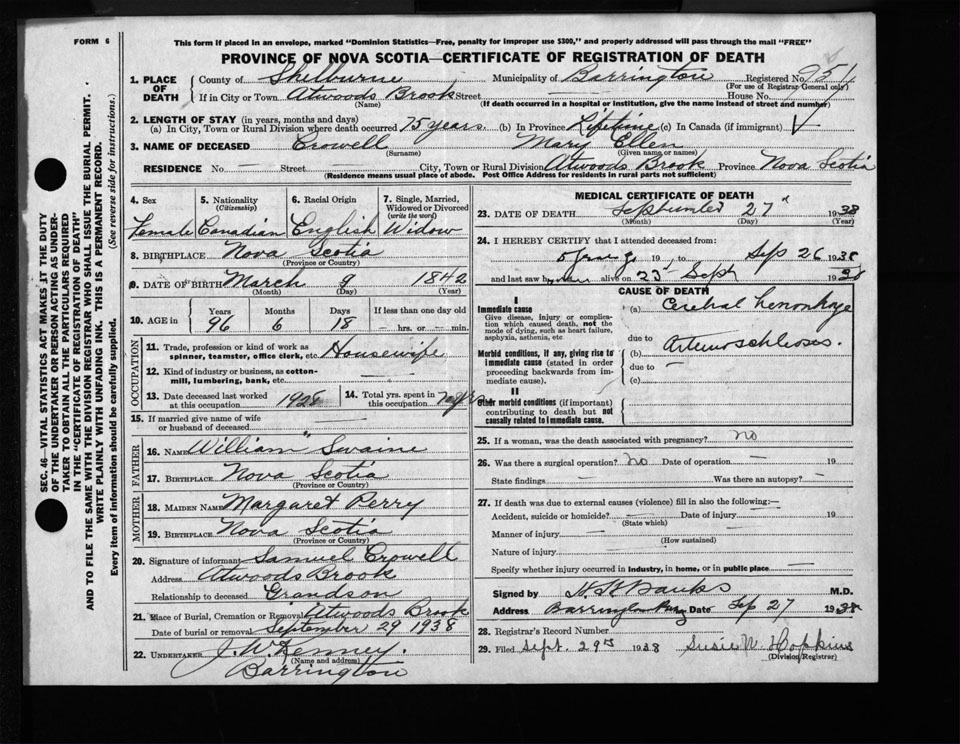 FORM 6
This form if placed in an envelope, marked "Dominion Statistics—Free, penalty for improper use $300," and properly addressed will pass through the mail "FREE"
PROVINCE OF NOVA SCOTIA—CERTIFICATE OF REGISTRATION OF DEATH
SEC. 46—VITAL STATISTICS ACT MAKES IT THE DUTY
OF THE UNDERTAKER OR PERSON ACTING AS UNDER-
TAKER TO OBTAIN ALL THE PARTICULARS REQUIRED
IN THE "CERTIFICATE OF REGISTRATION OF DEATH"
AND TO FILE THE SAME WITH THE DIVISION REGISTRAR WHO SHALL ISSUE THE BURIAL PERMIT.
WRITE PLAINLY WITH UNFADING INK. THIS IS A PERMANENT RECORD.
Every item of information should be carefully supplied. (See reverse side for instructions.)
1. PLACE OF DEATH
County of Shelburne Municipality of Barrington Registered No. 951
(For use of Registrar-General only)
If in City or Town Atwoods Brook Street — House No.
(Name) (If death occurred in a hospital or institution, give the name instead of street and number)
2. LENGTH OF STAY (in years, months and days)
(a) In City, Town or Rural Division where death occurred 75 years. (b) In Province Lifetime (c) In Canada (if immigrant)
3. NAME OF DECEASED Crowell Mary Ellen
(Surname) (Given name or names)
RESIDENCE No. Street City, Town or Rural Division Atwoods Brook Province Nova Scotia
(Residence means usual place of abode. Post Office Address for residents in rural parts not sufficient)
4. Sex Female
5. Nationality (Citizenship) Canadian
6. Racial Origin English
7. Single, Married, Widowed or Divorced (write the word) Widow
8. BIRTHPLACE Nova Scotia
(Province or Country)
9. DATE OF BIRTH March 9 1842
(Month) (Day) (Year)
10. AGE in Years Months Days If less than one day
96 6 18 — hrs. or — min.
OCCUPATION
11. Trade, profession or kind of work as spinner, teamster, office clerk, etc. Housewife
12. Kind of industry or business, as cotton-mill, lumbering, bank, etc. —
13. Date deceased last worked at this occupation 1928
14. Total yrs. spent in this occupation
15. If married give name of wife or husband of deceased
FATHER
16. NAME William Swaine
17. BIRTHPLACE Nova Scotia
(Province or Country)
MOTHER
18. MAIDEN NAME Margaret Perry
19. BIRTHPLACE Nova Scotia
(Province or Country)
20. Signature of informant Samuel Crowell
Address Atwoods Brook
Relationship to deceased Grandson
21. Place of Burial, Cremation or Removal Atwoods Brook
Date of burial or removal September 29 1938
22. UNDERTAKER J. W. Kenney.
(Name and address)
Barrington
MEDICAL CERTIFICATE OF DEATH
23. DATE OF DEATH September 27 1938
(Month) (Day) (Year)
24. I HEREBY CERTIFY that I attended deceased from:
19 to Sep 26 1938
and last saw alive on 23 Sept 1938
CAUSE OF DEATH
I
Immediate cause
Give disease, injury or complication which caused death, not the mode of dying, such as heart failure, asphyxia, asthenia, etc
(a) Cerebral hemorrhage
due to
Morbid conditions, if any, giving rise to immediate cause (stated in order proceeding backwards from immediate cause).
(b) Arteriosclerosis.
due to —
(c)
II
Other morbid conditions (if important) contributing to death but not causally related to immediate cause.
25. If a woman, was the death associated with pregnancy? no
26. Was there a surgical operation? no Date of operation — 19
State findings — Was there an autopsy? —
27. If death was due to external causes (violence) fill in also the following:—
Accident, suicide or homicide? — Date of injury 19
(State which)
Manner of injury
(How sustained)
Nature of injury
Specify whether injury occurred in industry, in home, or in public place —
Signed by H. H. Banks M.D.
Address Barrington Date Sep 27 1938
28. Registrar's Record Number
29. Filed Sept. 29th 1938 Susie N. Hopkins
(Division Registrar)